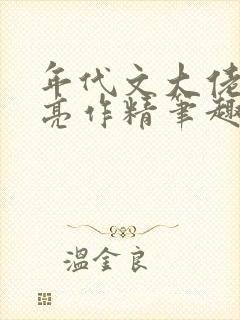 年代文大佬
亮作精笔趣
温金良